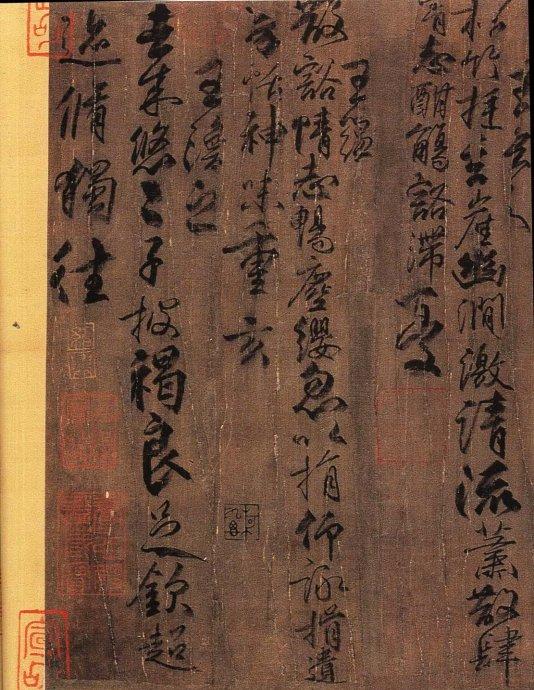 王玄之
松竹挺岩崖幽澗激清流蕭散肆
情志酣觴豁滯憂
王蘊
散豁情志暢塵纓忽以捐仰詠揖遺
芳怡神味重玄
王渙之
去来悠〻子披褐良足欽超
迹脩獨往